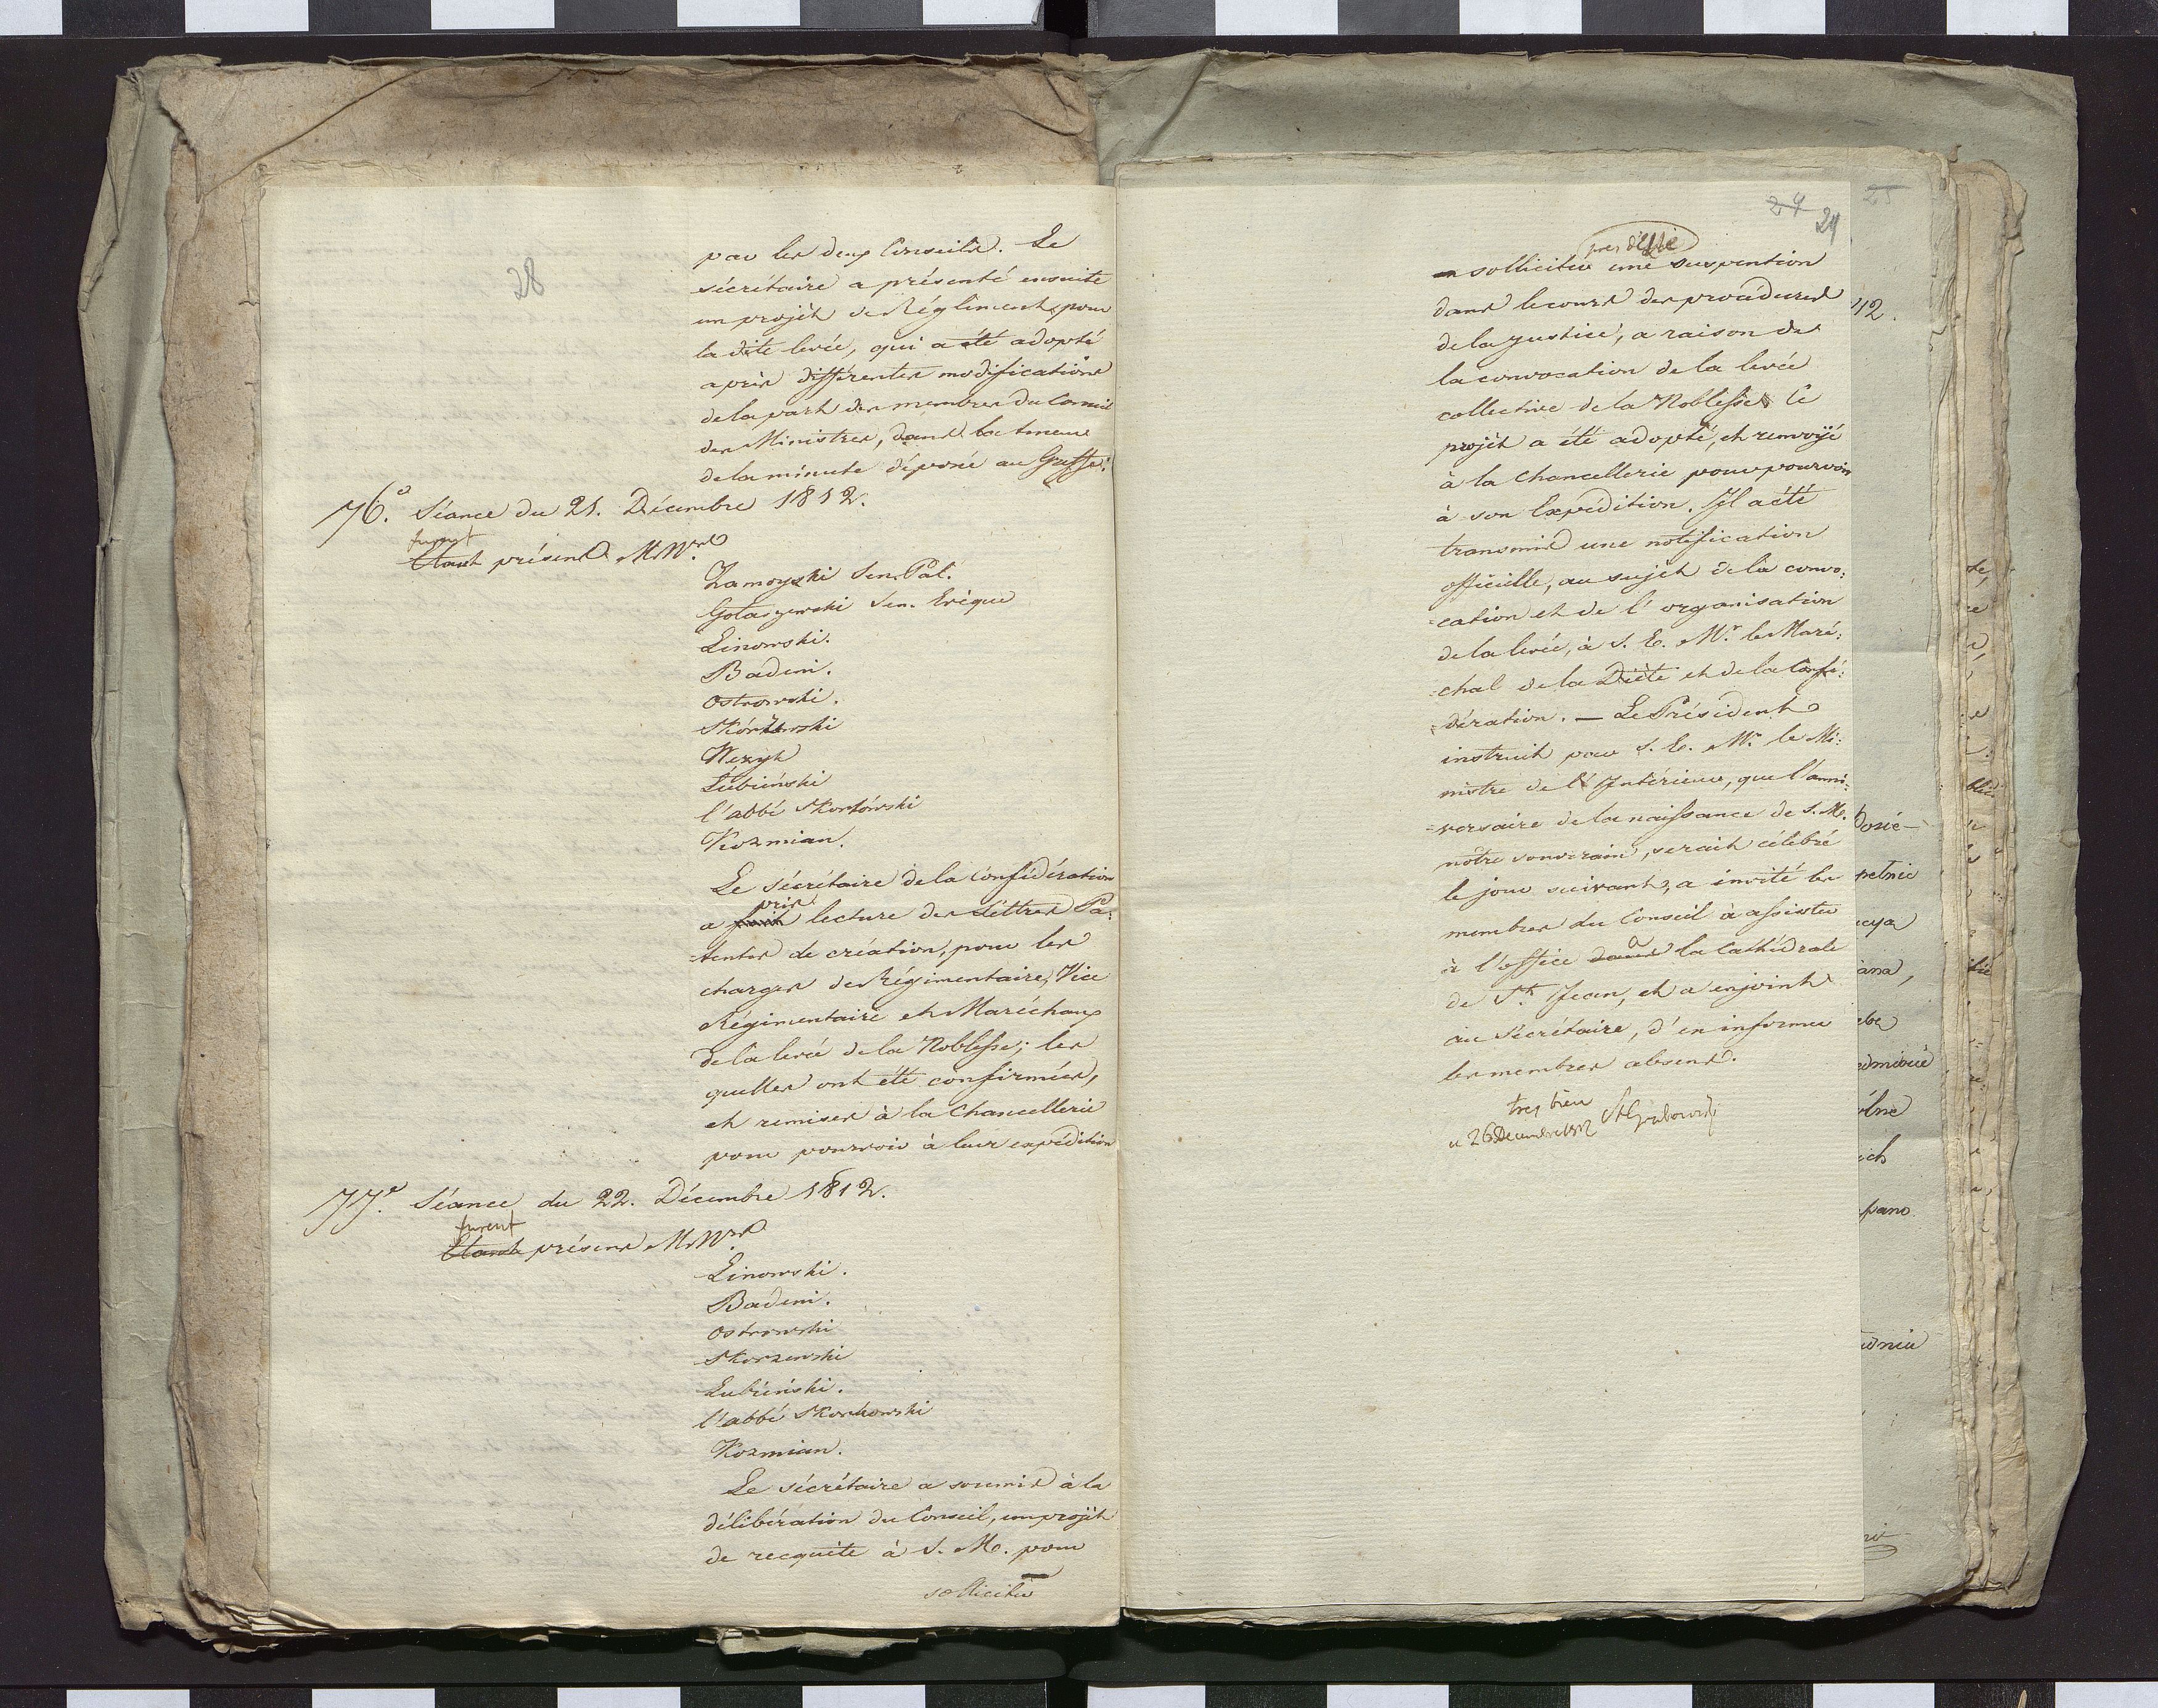 28
par les deux Conseils. Le
sécrétaire a présenté ensuite
un projèt de Réglément, pour
la dite levée, qui a été adopté
après différentes modifications
de la part des membres du Conseil
des Ministres, dans la teneur
de la minute déposée au Greffe.
76.e Séance du 21. Décembre 1812.
furent
Etant présens M.Mrs
Zamoyski Sen. Pal.
Gołaszewski Sen. Evêque
Linowski.
Badeni.
Ostrowski.
Skórzewski
Wezyk
Łubieński
l'abbé Skorkówski
Kozmian.
Le sécrétaire de la Confédération
pris
a fait lecture des Lettres Pa-
tentes de création, pour les
charges de Régimentaire, Vice
Régimentaire et Maréchaux
de la levée de la Noblesse; les
quelles ont été confirmées,
et remises à la Chancellerie
pour pourvoir à leur expédition
77.e Séance du 22. Décembre 1812.
furent
Etant présens M.Mrs
Linowski.
Badeni.
Ostrowski
Skorzewski
Lubieński.
l'abbé Skorkowski
Kozmian.
Le sécrétaire a soumis à la
délibération du Conseil, un projèt
de recquête à S. M. pour
solliciter
24 29
solliciter une suspention
dans le cours des procédures
de la justice, a raison de
la convocation de la levée
collective de la Noblesse. Ce
projèt a été adopté, et renvoyé
à la Chancellerie pour pourvoir
à son Expédition. Il a été
transmis une notification
officielle, au sujèt de la convo-
cation et de l'organisation
de la levée, à S. E. Mr. le Maré-
chal de la Diète et de la Confé-
dération. — Le Président
instruit par S. E. Mr. le Mi-
nistre de l'Intérieur, que l'anni-
versaire de la naissance de S. M.
nôtre souverain, serait célébré
le jour suivant, a invité les
membres du Conseil à assister
a
à l'office dans la Cathédrale
de St. Jean, et a enjoint
au Sécrétaire, d'en informer
les membres absens.
tres bien
a 26 Decembre 1812 St Grabowski
25